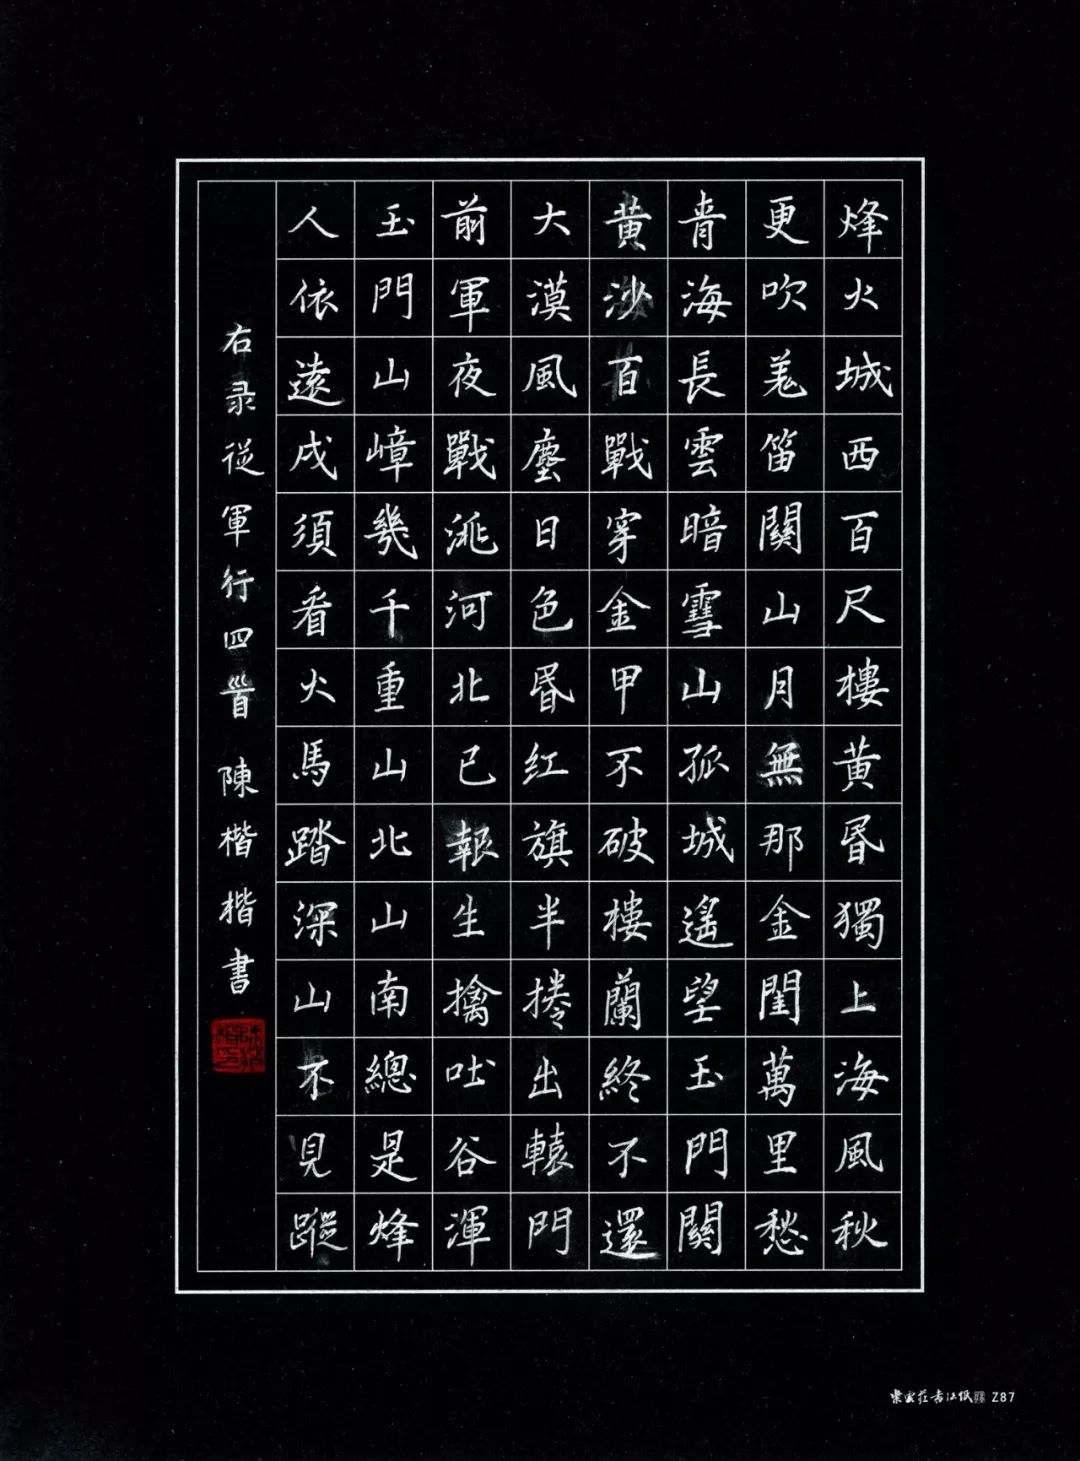 烽火城西百尺樓黄昬獨上海風秋
更吹羗笛關山月無那金閨萬里愁
青海長雲暗雪山孤城遥望玉門關
黄沙百戰穿金甲不破樓蘭終不還
大漠風塵日色昬红旗半捲出轅門
前軍夜戰洮河北已報生擒吐谷渾
玉門山嶂幾千重山北山南總是烽
人依遠戍須看火馬踏深山不見蹤
右录從軍行四首 陳楷楷書
紫雲莊書法纸 Z87